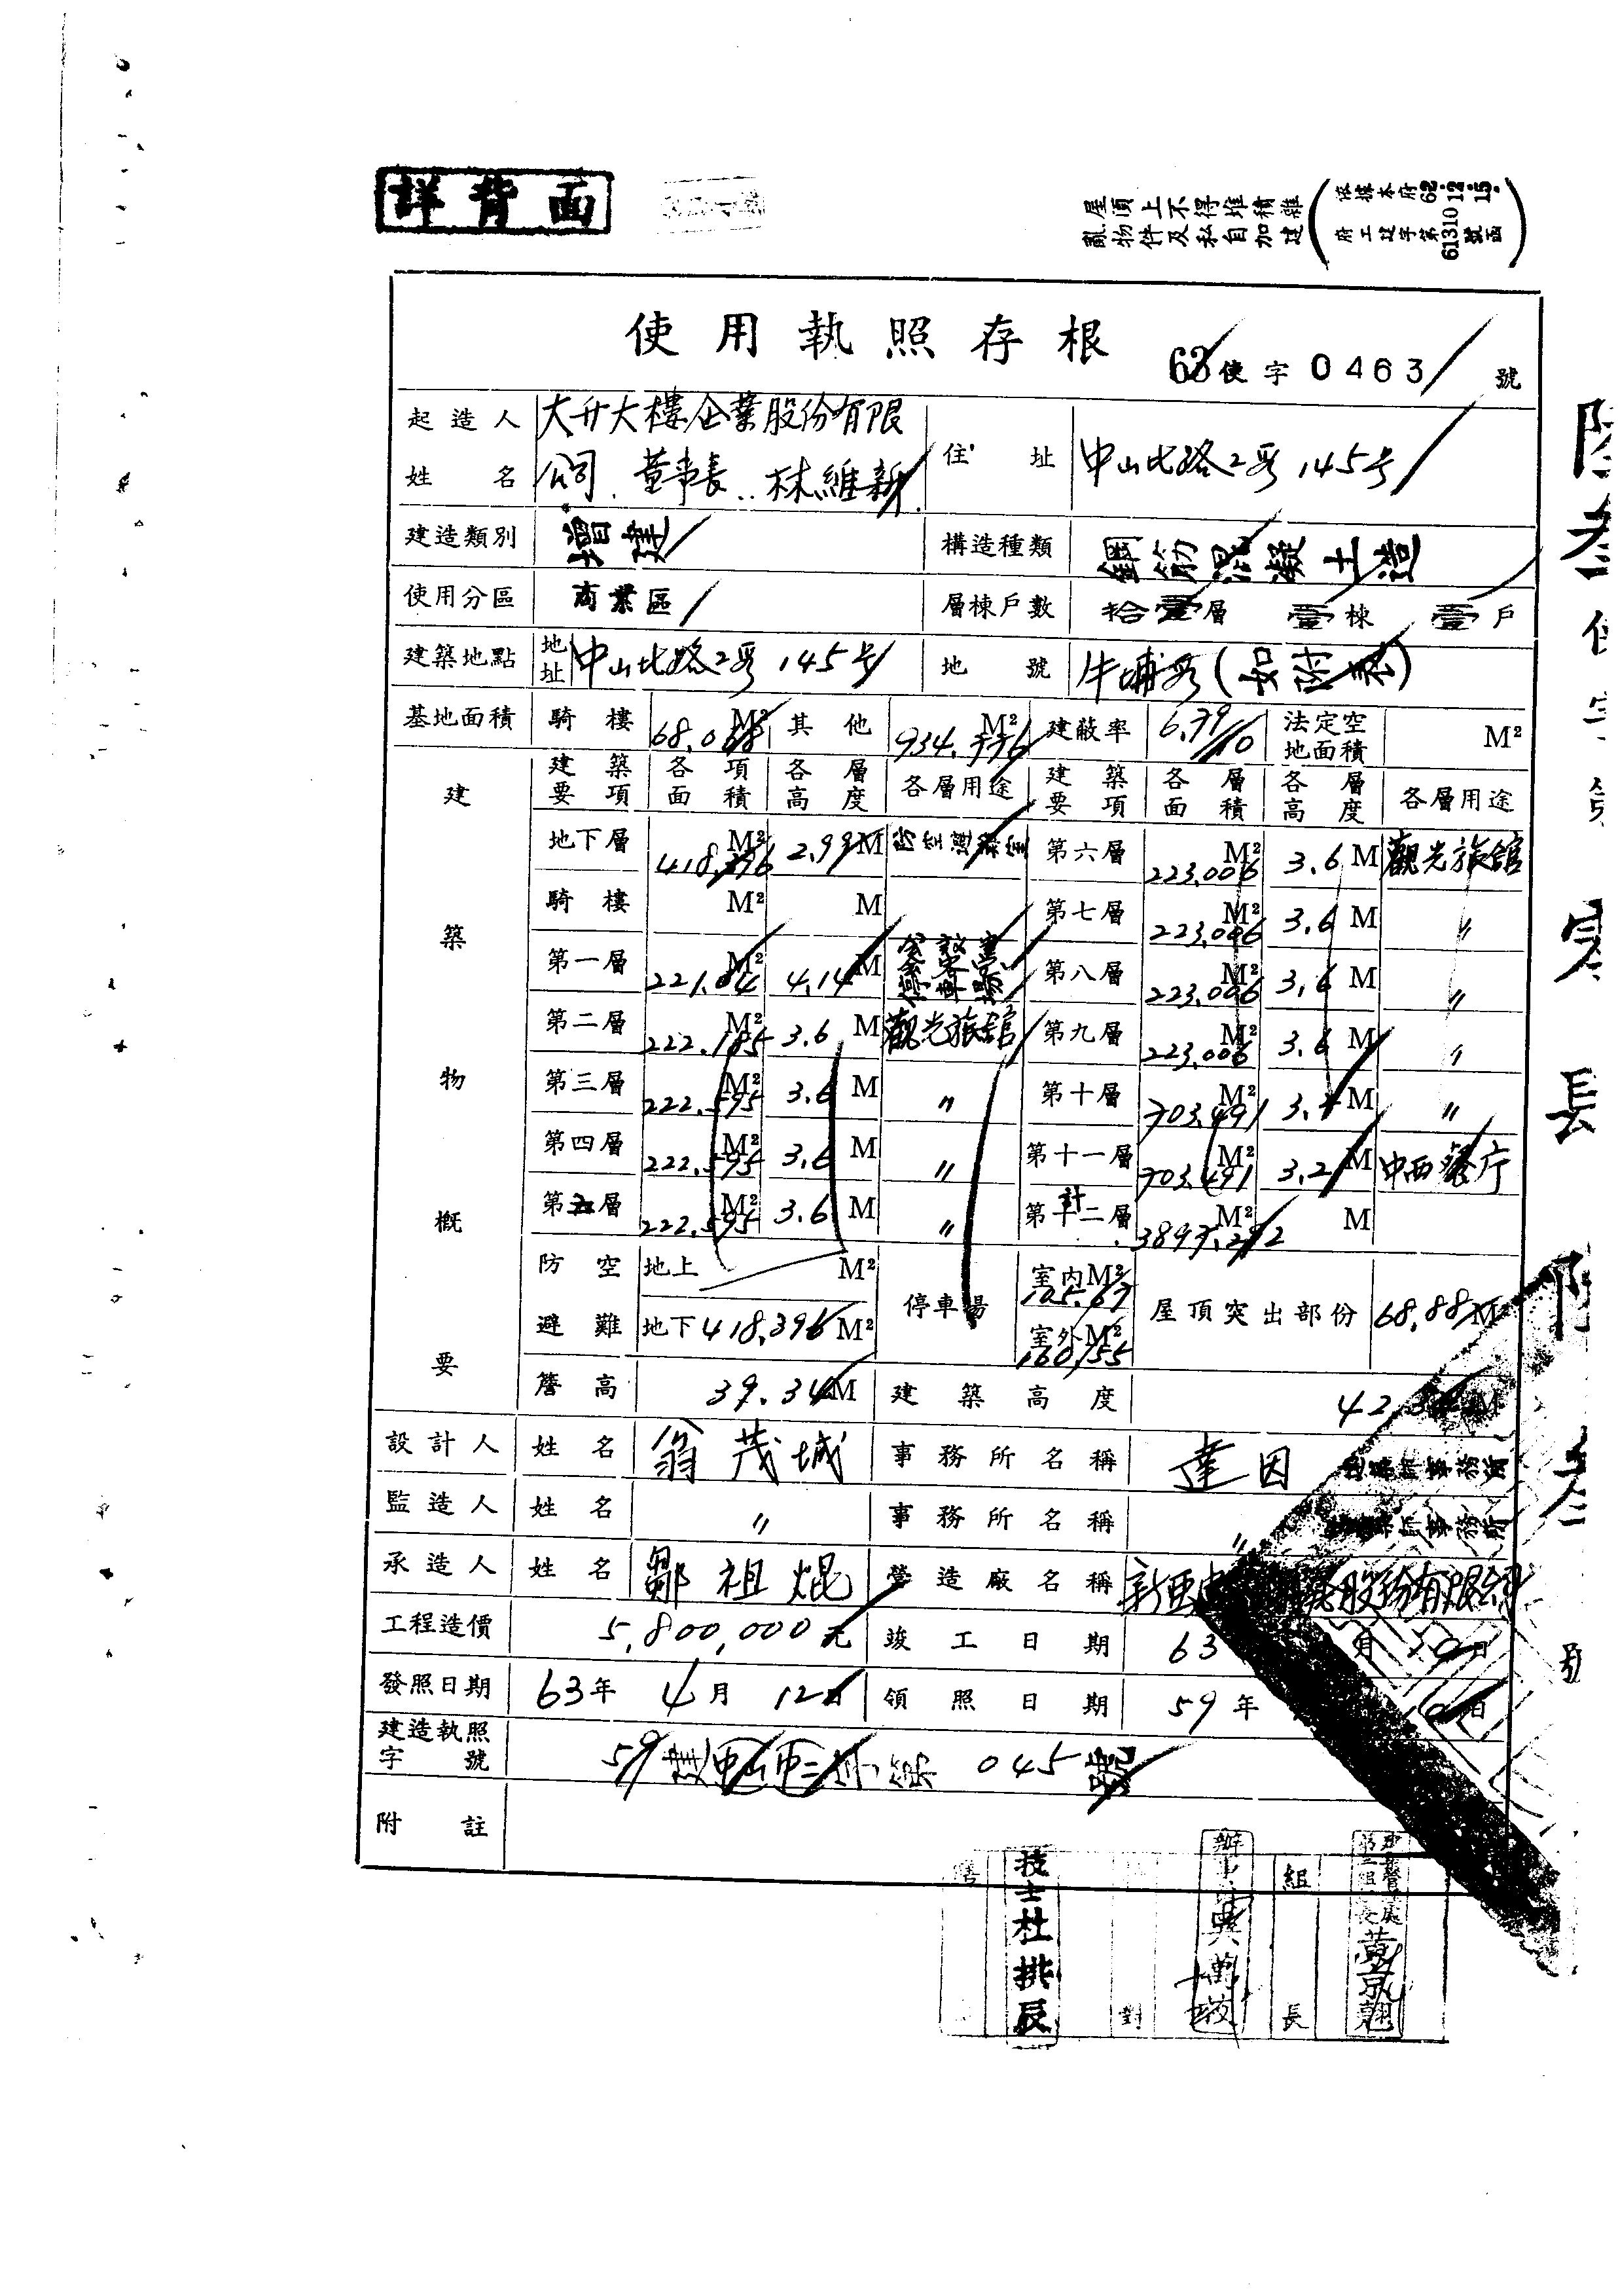 詳背面
屋頂上不得堆積雜
亂物件及私自加建
依據本府62.12.15.
府工建字第61310號函
使用執照存根
63使字0463號
起造人姓名 大升大樓企業股份有限公司.董事長..林維新 住址 中山北路2段145号
建造類別 增建 構造種類 鋼筋混凝土造
使用分區 商業區 層棟戶數 拾壹層 壹棟 壹戶
建築地點 地址 中山北路2段145号 地號 牛埔段(如附表)
基地面積 騎樓 68.068M² 其他 934.776M² 建蔽率 6.79/10 法定空地面積 M²
建築物概要
建築要項 各項面積 各層高度 各層用途 建築要項 各層面積 各層高度 各層用途
地下層 418.396M² 2.99M 防空避難室 第六層 223.006M² 3.6M 觀光旅館
騎樓 M² M 第七層 223.006M² 3.6M 〃
第一層 221.04M² 4.14M 停車場 第八層 223.006M² 3.6M 〃
第二層 222.185M² 3.6M 觀光旅館 第九層 223.006M² 3.6M 〃
第三層 222.595M² 3.6M 〃 第十層 703.491M² M 〃
第四層 222.595M² 3.6M 〃 第十一層 703.491M² 3.2M 中西餐庁
第五層 222.595M² 3.6M 〃 第十二層 計 M² M
防空避難 地上 M² 停車場 室內M² 105.67 屋頂突出部份 68.88M²
地下418.396M² 室外M² 160.55
簷高 39.34M 建築高度 42. M
設計人 姓名 翁茂城 事務所名稱 達因建築師事務所
監造人 姓名 〃 事務所名稱 〃 建築師事務所
承造人 姓名 鄒祖焜 營造廠名稱 新亞 股份有限公司
工程造價 5,800,000元 竣工日期 63 月 20日
發照日期 63年4月12日 領照日期 59年 10日
建造執照字號 59建 第045號
附註
技士杜排辰
對
組長